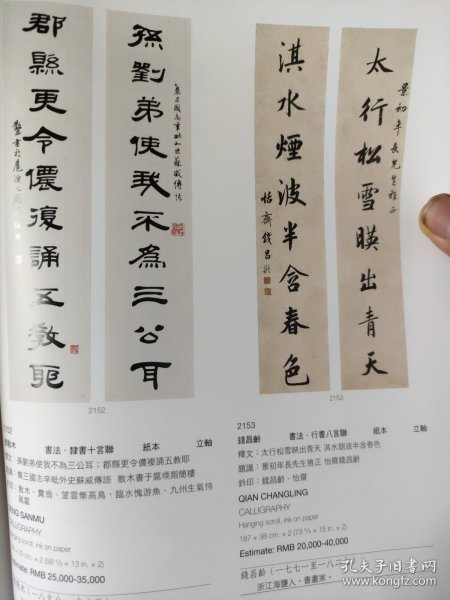 孫劉弟使我不為三公耳
郡縣更令儂復誦五教耶
太行松雪暎出青天
景初年長先生雅正
淇水煙波半含春色
怡齋錢昌齡
2152
2153
2152
書法·隸書十言聯 紙本 立軸
釋文：孫劉弟使我不為三公耳；郡縣更令儂複誦五教耶
題識：集三國志辛毗外史蘇威傳語 散木書于厞堧廁簡樓
散木、糞翁、望雲慚高鳥，臨水愧游魚、九州生氣恃
風雷
DENG SANMU
CALLIGRAPHY
Hanging scroll, ink on paper
Estimate: RMB 25,000-35,000
2153
錢昌齡 書法·行書八言聯 紙本 立軸
釋文：太行松雪映出青天 淇水烟波半含春色
題識：景初年長先生雅正 怡齋錢昌齡
鈐印：錢昌齡、怡齋
QIAN CHANGLING
CALLIGRAPHY
Hanging scroll, ink on paper
187 × 38 cm. × 2 (73 5/8 × 15 in. × 2)
Estimate: RMB 20,000-40,000
錢昌齡（一七七一至一八二
浙江海鹽人。書畫家。
孔夫子旧书网